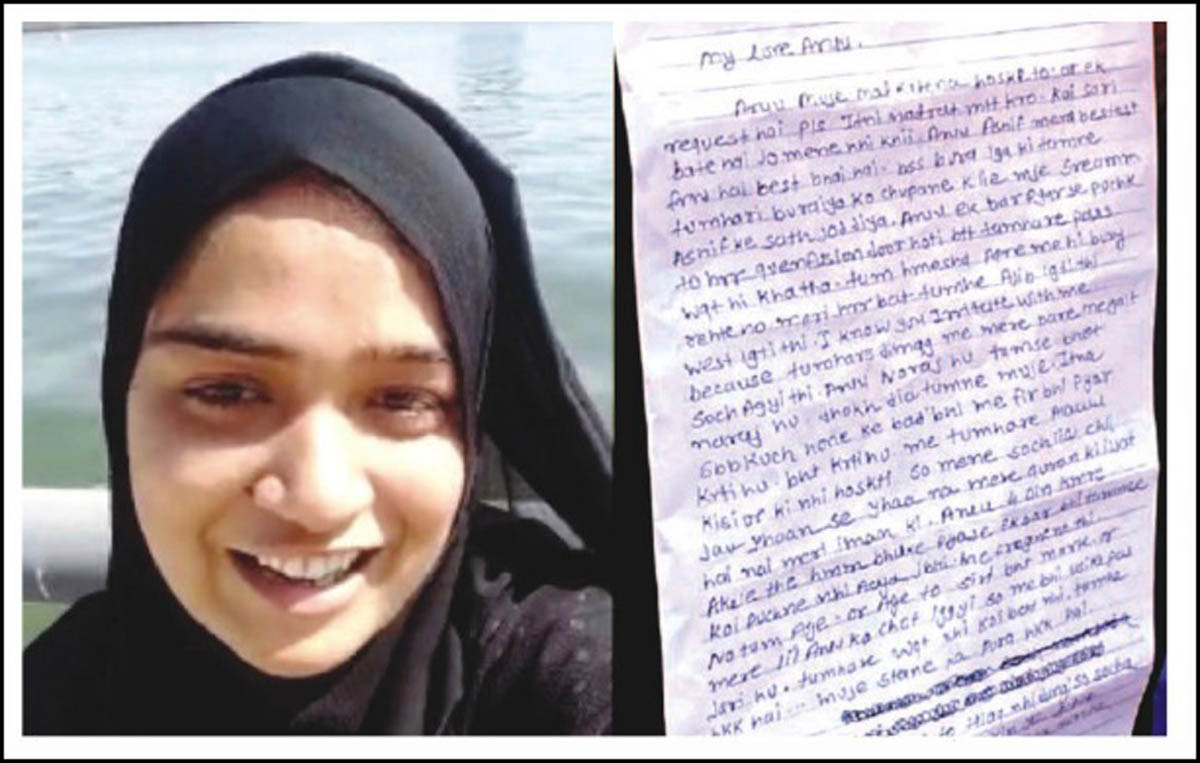 My love Aruu.
Aruu Muje maf krna hoske to. or ek
request hai pls Itni nafrat mtt kro. Kai sari
bate hai Jo mene nhi knii. Aruu Asnif mera bestest
frnd hai best bhai hai. bss bura lga ki tumne
tumhari buraiya ko chupane k lie mje
Asnif ke sath joddiya. Aruu ek bar Pyar se pochk
to hrr door hoti btt tumhare pass
wqt hi tum hmesha Apne me hi busy
rehte ho meri hrr bat tumhe Ajib lgti thi
west lgti thi. I know you Irritate with me
because tumhare dimag me mere bare me galt
Soch Agyi thi. Aruu Naraj hu tumse bhot
naraj hu dhokh dia tumne muje. Itna
Sbb kuch hone ke bad bhi me fir bhi Pyar
krti hu. bht krti hu me tumhare
kisi or ki nhi hoskti So mene soch lia chli
jau yhaan se yhaa na mere quran ki
hai na meri iman ki. Aruu 4 Din hmre
Akele the hmm bhuke Pyase ekbar bhi tumse
koi puchne nhi Aaya jbki me Pregnent hi
Na tum Aye. or Aye to sirf bht mara. or
mere lil Aruu ko chot lggyi so me bhi uske pas
Jari hu. tumhare wqt nhi koi bat nhi. tumhe
hkk hai... muje stane ka pura hkk hai.